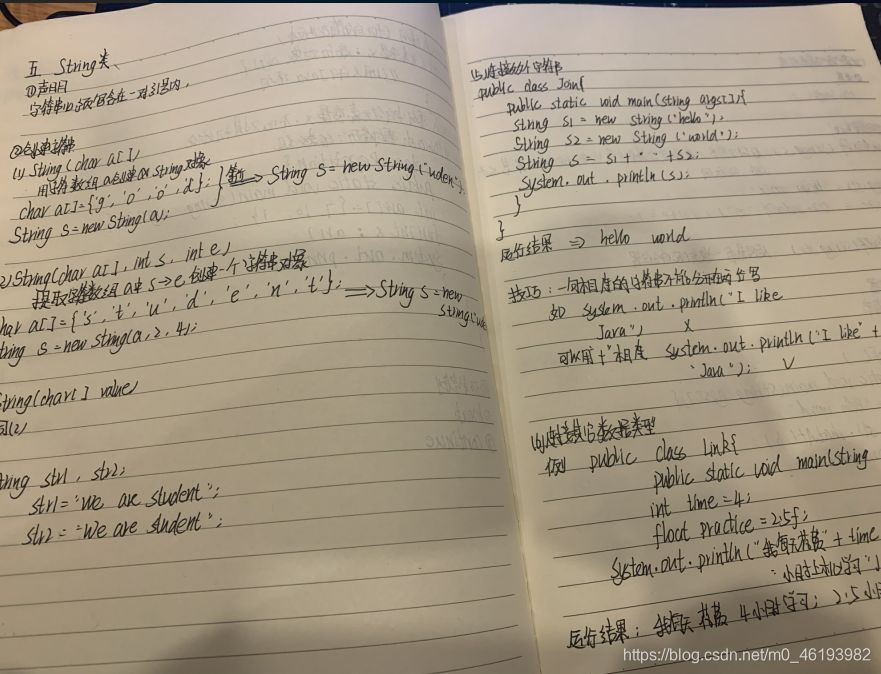 五 String类
①声明
字符串必须包含在一对引号内,
②创建字符串
(1) String(char a[])
用字符数组a创建String对象
char a[]={'g','o','o','d'};
String s=new String(a);
⟹ String s=new String("uden");
2) String(char a[], int s, int e)
提取字符数组a中s→e创建一个字符串对象
har a[]={'s','t','u','d','e','n','t'};
tring s=new String(a,2,4);
⟹ String s=new
String("ud
String(char[] value)
同(2)
tring str1, str2;
str1="we are student";
str2="we are student";
(5)连接多个字符串
public class Join{
public static void main(string args[]){
string s1 = new string("hello");
String s2 = new String("world");
String s = s1+" "+s2;
System.out.println(s);
}
}
运行结果 ⟹ hello world
技巧:一句相连的字符串不能分开在两行写
如 system.out.println("I like
Java") ×
可以用"+"相连 system.out.println("I like" +
"Java"); √
(6)连接其它数据类型
例 public class Link{
public static void main(string
int time=4;
float practice=2.5f;
system.out.println("我每天花费"+time
"小时上机学习")
运行结果: 我每天花费4小时学习; 2.5小
https://blog.csdn.net/m0_46193982